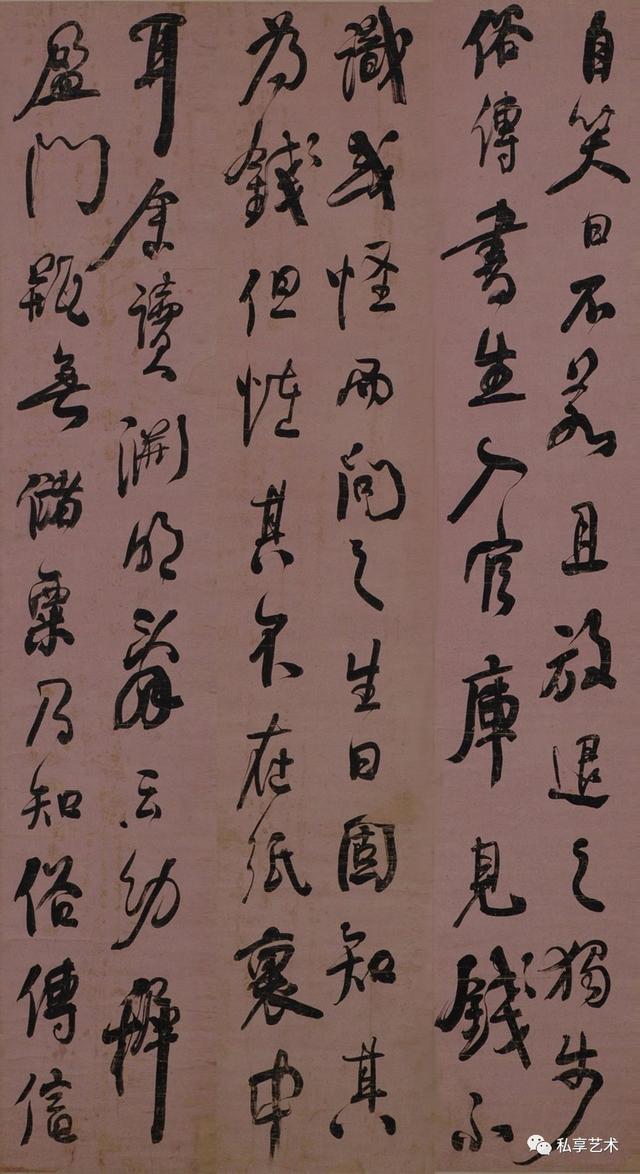 自笑曰不若且放退之獨步
俗傳書生入官庫見錢不
識或怪而問之生曰固知其
為錢但恠其不在紙裏中
耳余讀淵明辭云幼稺
盈門瓶無儲粟乃知俗傳信
私享艺术